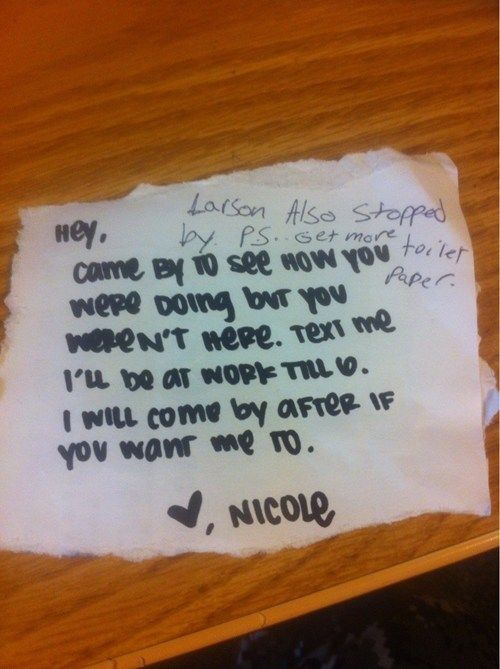 Larson Also Stopped
by. P.S.. Get more toilet
Paper.
Hey,
Came by to see how you
were doing but you
weren't here. Text me
I'll be at work till 6.
I will come by after if
you want me to.
♥, Nicole